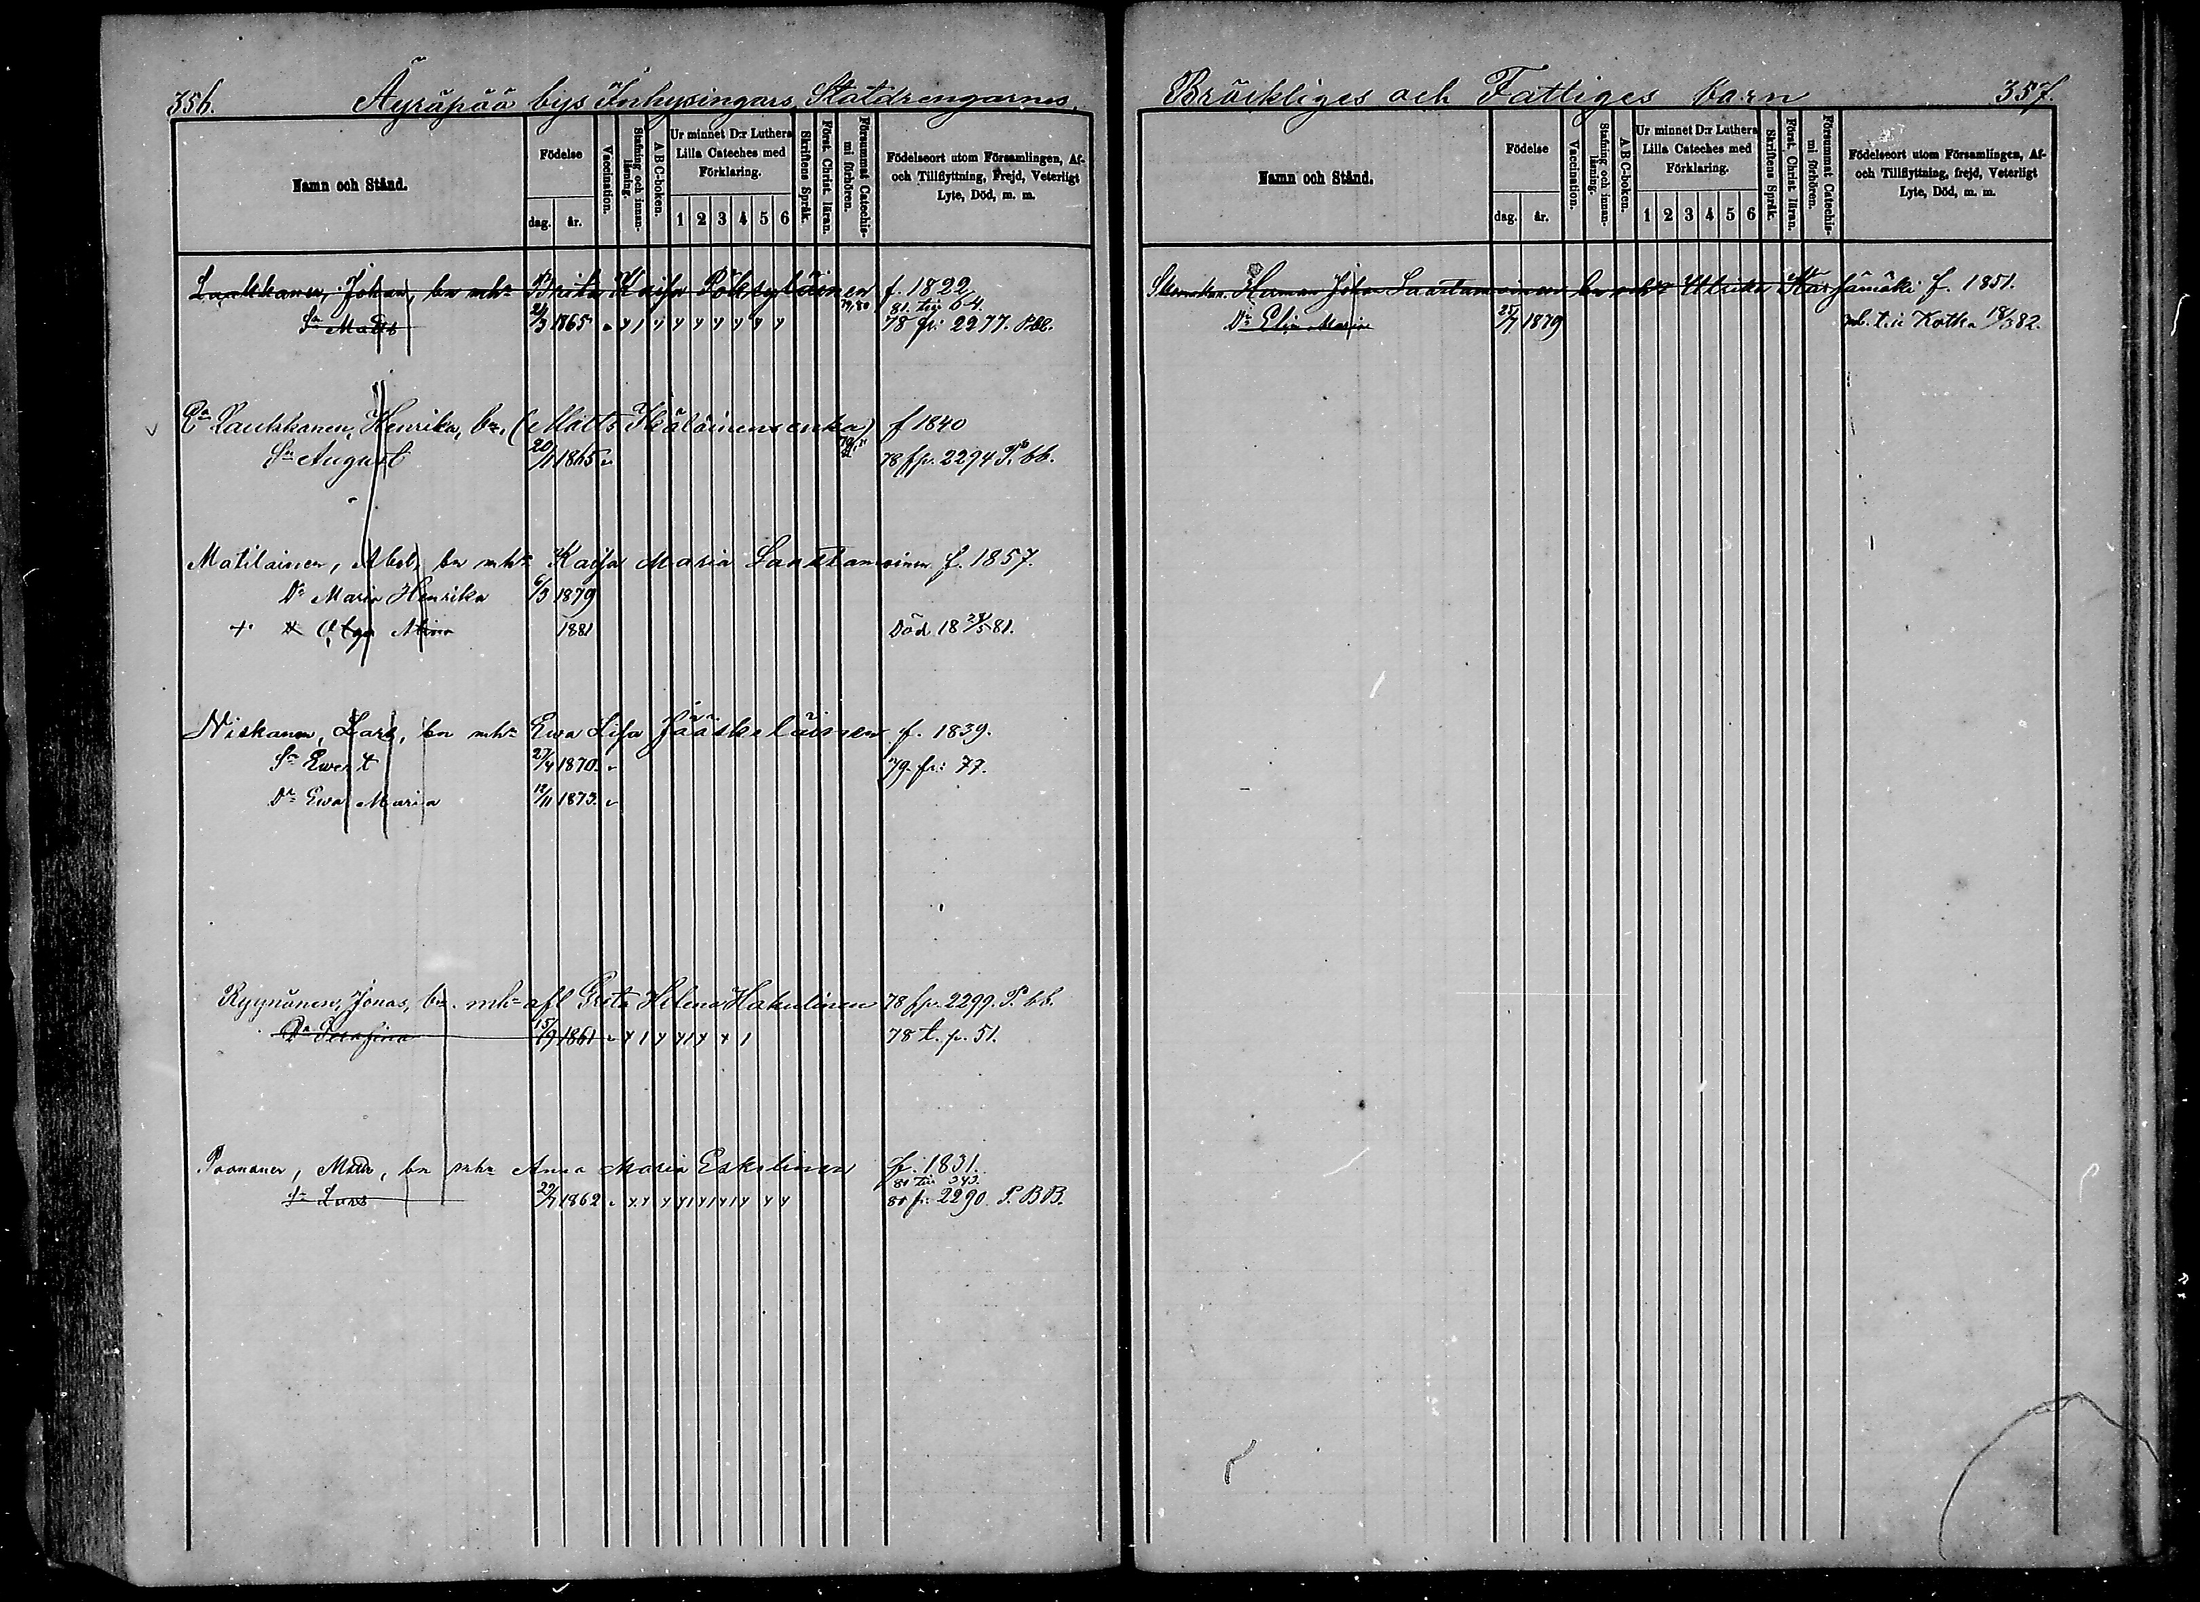 356. Äyräpää bys Inhysingars, Statdrengarnes,
Namn och Stånd.
Födelse
dag. år.
Vaccination.
Stafning och innan-läsning.
A B C-boken.
Ur minnet D:r Luthers Lilla Cateches med Förklaring.
1 2 3 4 5 6
Skriftens Språk.
Först. Christ. läran.
Försummat Catechis-mi förhören.
Födelseort utom Församlingen, Af- och Tillflyttning, Frejd, Veterligt Lyte, Död, m. m.
Laukkanen, Johan, bn mhu Brita Kaisa Pöksyläinen f. 1822
79,80 81. till 64
Sn Matts 2/3 1865 78 fr: 2277. P.bb.
Ea Laukkanen, Henrika, bn, (Matts enka) f 1840
Sn August 20/1 1865 78 fr. 2294 P. bb.
Matilainen, Abel, bn mhu Kaisa Maria Saastamoinen f. 1857.
Dr Maria Henrika 6/3 1879
+ Olga 1881 Död 18 28/5 81.
Niskanen, Lars, bn mhu Ewa Lisa Jääskeläinen f. 1839.
Sn Ewert 27/4 1870. 79. fr: 77.
Dr Ewa Maria 12/11 1873.
Ryynänen, Jonas, bn. mhu afl Greta Helena Hakulinen 78 fr. 2299. P. bb.
Dr Serafina 15/9 1861 78 t. p. 51.
Paananen, Matts, bn mhu Anna Maria Eskelinen f. 1831.
80 till 343.
Sn Lars 29/7 1862 80 fr: 2290. P. BB.
Bräckliges och Fattiges barn 357.
Namn och Stånd.
Födelse
dag. år.
Vaccination.
Stafning och innan-läsning.
A B C-boken.
Ur minnet D:r Luthers Lilla Cateches med Förklaring.
1 2 3 4 5 6
Skriftens Språk.
Först. Christ. läran.
Försummat Catechis-mi förhören.
Födelseort utom Församlingen, Af- och Tillflyttning, frejd, Veterligt Lyte, Död, m. m.
Herman Johan Saastamoinen bn mhu Ulrika Karjämäki f. 1851.
Dr Elin Maria 25/7 1879 mb. till Kotka 18/3 82.